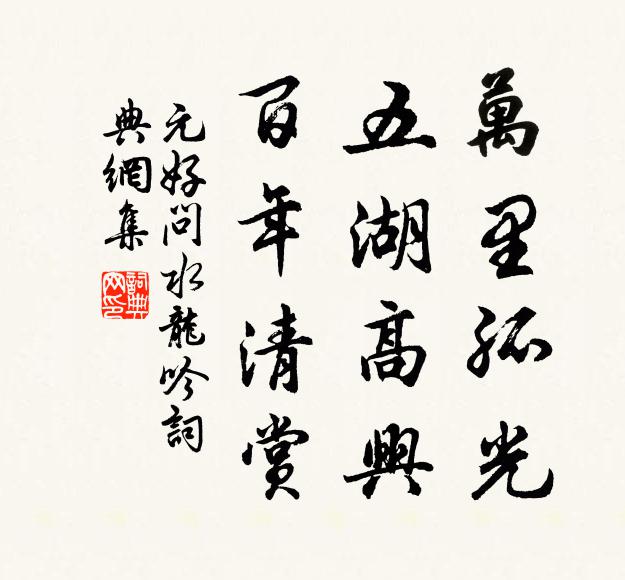 萬里孤光
五湖高興
百年清賞
元好問水龍吟詞
典網集
詞典网印